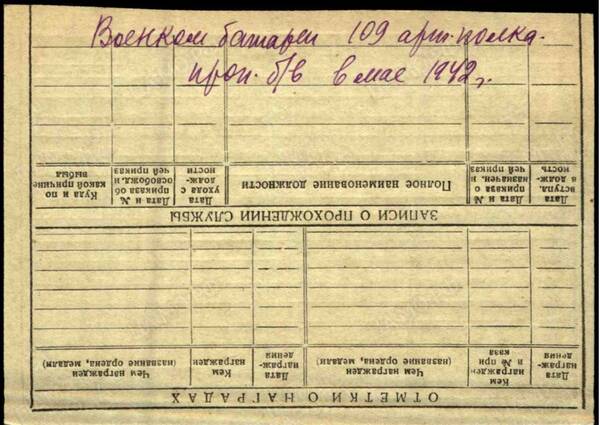 Военком батареи 109 арт. полка.
проп. б/в в мае 1942 г.
ОТМЕТКИ О НАГРАДАХ
Дата
награж-
дения
Кем
награжден
и № при
каза
Чем награжден
(название ордена, медали)
Дата
награж-
дения
Кем
награжден
Чем награжден
(название ордена, медали)
ЗАПИСИ О ПРОХОЖДЕНИИ СЛУЖБЫ
Дата
вступл.
в долж-
ность
Дата и №
приказа о
назначен. и
чей приказ
Полное наименование должности
Дата
ухода с
долж-
ности
Дата и №
приказа об
освобожд. и
чей приказ
Куда и по
какой причине
выбыл